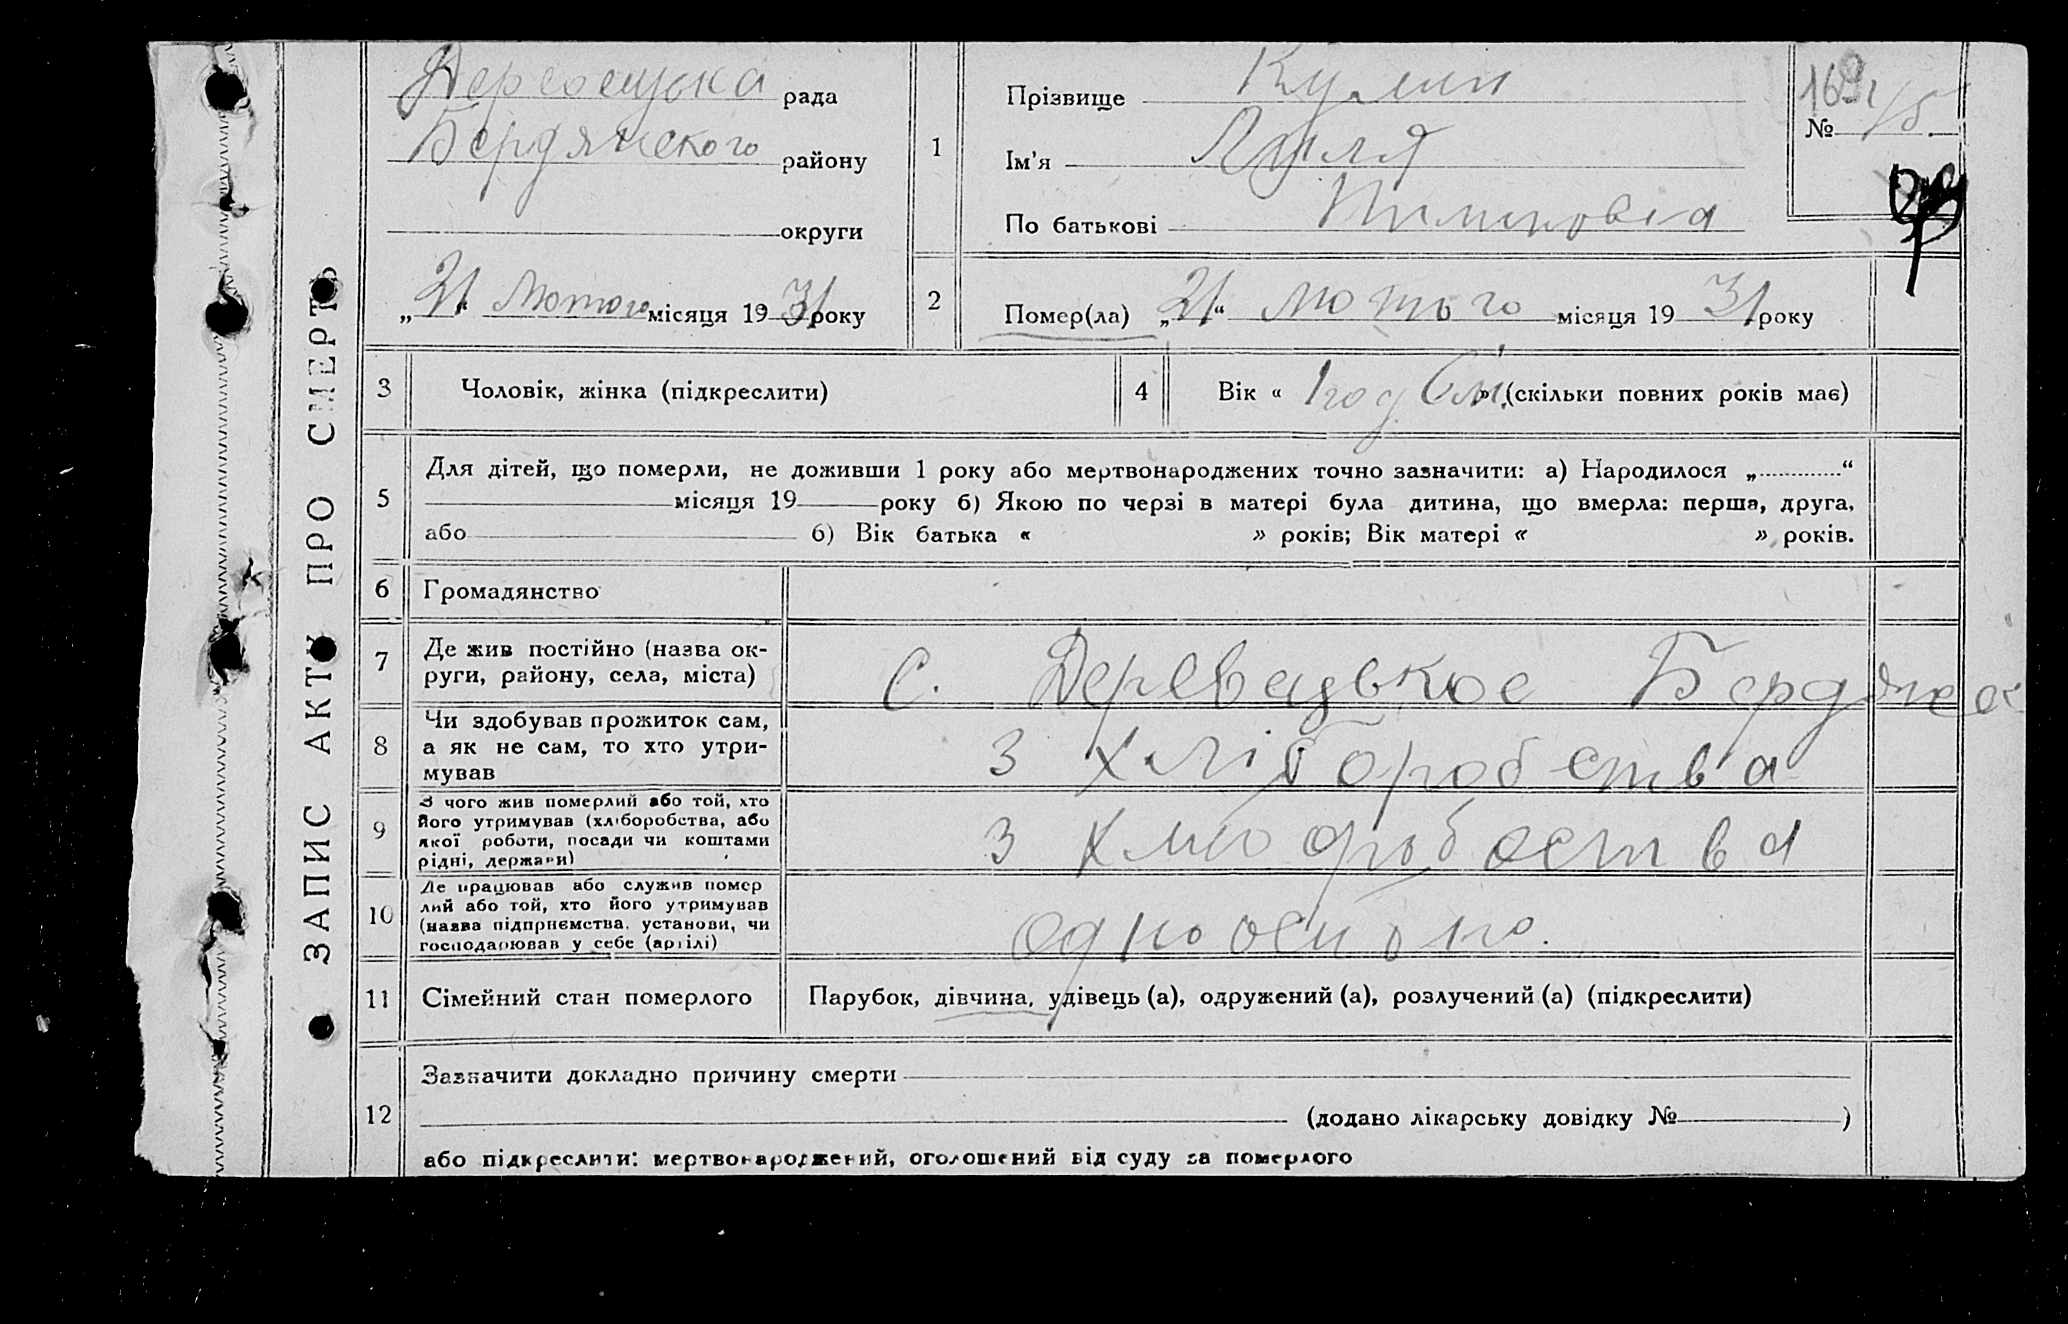 ЗАПИС АКТУ ПРО СМЕРТЬ
рада
Бердянского району
округи
„21“ Лютого місяця 1931 року
1
Прізвище
Ім'я
По батькові
169
№ 15
2
Помер(ла) „21“ лютого місяця 1931 року
3 Чоловік, жінка (підкреслити)
4 Вік « 1 год 6 м. » (скільки повних років має)
5
Для дітей, що померли, не доживши 1 року або мертвонароджених точно зазначити: а) Народилося „ “
місяця 19 року б) Якою по черзі в матері була дитина, що вмерла: перша, друга,
або б) Вік батька « » років; Вік матері « » років.
6 Громадянство
7
Де жив постійно (назва ок-
руги, району, села, міста)
с. Деревецькое
8
Чи здобував прожиток сам,
а як не сам, то хто утри-
мував
З хліборобства
9
З чого жив померлий або той, хто
його утримував (хліборобства, або
якої роботи, посади чи коштами
рідні, держави)
З
10
Де працював або служив помер
лий або той, хто його утримував
(назва підприємства, установи, чи
господарював у себе (артілі)
11 Сімейний стан померлого
Парубок, дівчина, удівець (а), одружений (а), розлучений (а) (підкреслити)
12
Зазначити докладно причину смерти
(додано лікарську довідку № )
або підкреслити: мертвонароджений, оголошений від суду за померлого